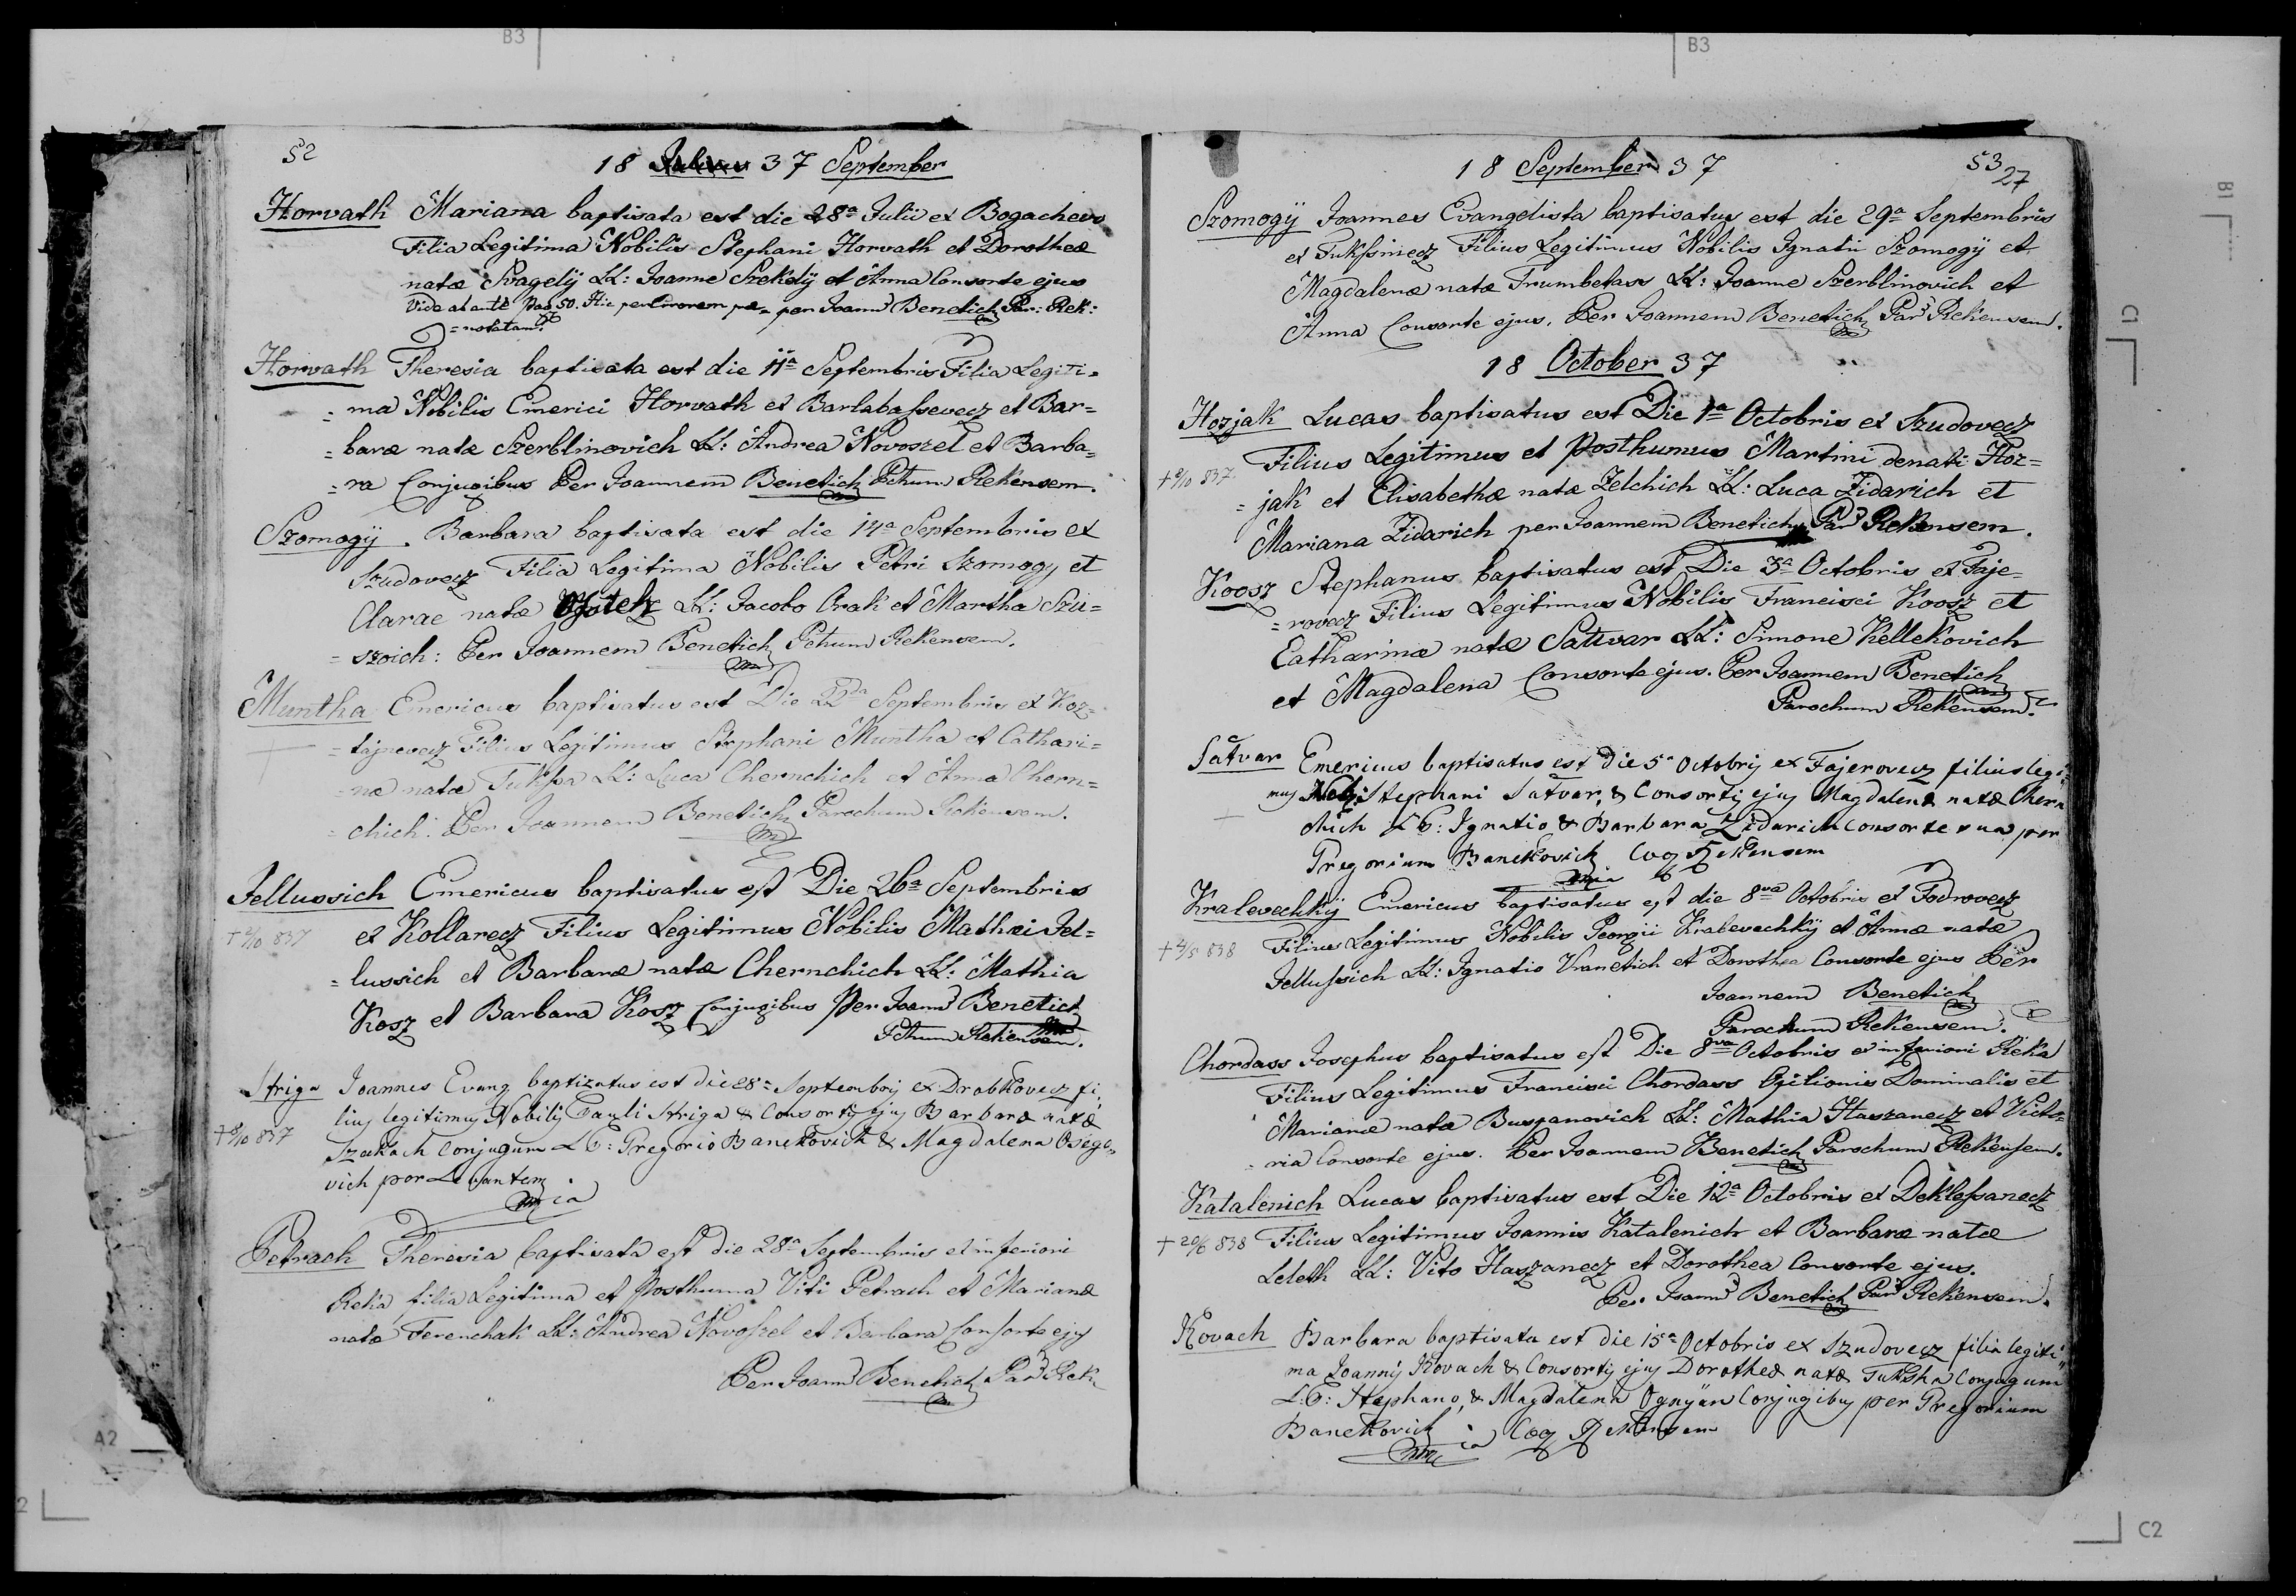 B3
B3
52
18 Julius 37 September
Horvath Mariana baptisata est die 28ª Julii ex Bogachevo
Filia Legitima Nobilis Stephani Horvath et Dorotheæ
natæ Svagely LL: Joanne Szekely et Anna Consorte ejus
Vide at ante Pag 50. Hic per Errorem præ= per Joann Benetich Par: Rek:
=notatam.
Horvath Theresia baptisata est die 11ª Septembris Filia Legiti=
=ma Nobilis Emerici Horvath et Barlabassevecz et Bar=
=baræ natæ Szerblinovich LL: Andrea Novoszel et Barba=
=ra Conjugibus Per Joannem Benetich Pchum Rekensem.
Szomogÿ. Barbara baptisata est die 14ª Septembris ex
Szudovecz Filia Legitima Nobilis Petri Szomogy et
Clarae natæ LL: Jacobo Orak et Martha Szu=
=szoich: Per Joannem Benetich Pchum Rekensem.
Muntha Emericus baptisatus est Die 22ª Septembris ex Koz=
=tajnevecz Filius Legitimus Stephani Muntha et Cathari=
=næ natæ Tukssa LL: Luca Chernchich et Anna Chern=
=chich. Per Joannem Benetich Parochum Rekensem.
Jellussich Emericus baptisatus est Die 26ª Septembris
+ 2/10 837 ex Kollarecz Filius Legitimus Nobilis Mathæi Jel=
=lussich et Barbaræ natæ Chernchich LL: Mathia
Kosz et Barbara Kosz Conjugibus Per Joann Benetich
Pchum Rekensem.
Striga Joannes Evang baptizatus est die 28ª Septembrij ex Drabkovecz fi,
lius legitimus Nobilij Pauli Striga & Consortij ejus Barbaræ natæ
+ 8/10 837 Szakach Conjugum L C: Gregorio Banekovich & Magdalena Osego,
vich per Levantem
Petrach Theresia baptisata est die 28ª Septembris ex inferiori
Reka filia Legitima et Posthuma Viti Petrach et Marianæ
natæ Ferenchak LL: Andrea Novoszel et Barbara Consorte ejus
Per Joann Benetich Par Rek:
18 September 37
53
27
Szomogÿ Joannes Evangelista baptisatus est die 29ª Septembris
ex Tukssinecz Filius Legitimus Nobilis Ignatii Szomogÿ et
Magdalenæ natæ Trumbetass LL: Joanne Szerblinovich et
Anna Consorte ejus. Per Joannem Benetich Par Rekensem.
18 October 37
Hozjak Lucas baptisatus est Die 1ª Octobris ex Szudovecz
+ 8/10 837 Filius Legitimus et Posthumus Martini denati Hoz=
=jak et Elisabethæ natæ Zelchich LL: Luca Zidarich et
Mariana Zidarich per Joannem Benetich Par Rekensem.
Koosz Stephanus baptisatus est Die 3ª Octobris ex Faje=
=rovecz Filius Legitimus Nobilis Francisci Koosz et
Catharinæ natæ Sattvar LL: Simone Kellekovich
et Magdalena Consorte ejus. Per Joannem Benetich
Parochum Rekensem.
Satvar Emericus baptisatus est die 5ª Octobrij ex Fajerovecz filius legi,
mus Nobi Stephani Satvar, & Consortij ejus Magdalenæ natæ Chern
chich L C: Ignatio & Barbara Zidarich consorte sua per
Gregorium Banekovich Coo Rekensem
Kralevechkÿ Emericus baptisatus est die 8va Octobris ex Fodrovecz
+ 4/5 838 Filius Legitimus Nobilis Georgii Kralevechkÿ et Annæ natæ
Jellussich LL: Ignatio Vranetich et Dorothea Consorte ejus Per
Joannem Benetich
Parochum Rekensem.
Chordass Josephus baptisatus est Die 8va Octobris ex inferiori Reka
Filius Legitimus Francisci Chordass Opilionis Dominalis et
Marianæ natæ Buspanovich LL: Mathia Haszanecz et Victo=
=ria Consorte ejus. Per Joannem Benetich Parochum Rekensem.
Katalenich Lucas baptisatus est Die 12ª Octobris ex Deklessanecz
+ 20/6 838 Filius Legitimus Joannis Katalenich et Barbaræ natæ
Leleth LL: Vito Haszanecz et Dorothea Consorte ejus.
Per Joann Benetich Par Rekensem.
Kovach Barbara baptisata est die 15ª Octobris ex Szudovecz filia legiti"
ma Joannij Kovach & Consortij ejus Dorotheæ natæ Tuksha Conjugum
L:C: Stephano, & Magdalena Ognyan Conjugibus per Gregorium
Banekovich Coo Rekensem
B1
C1
A2
2
C2